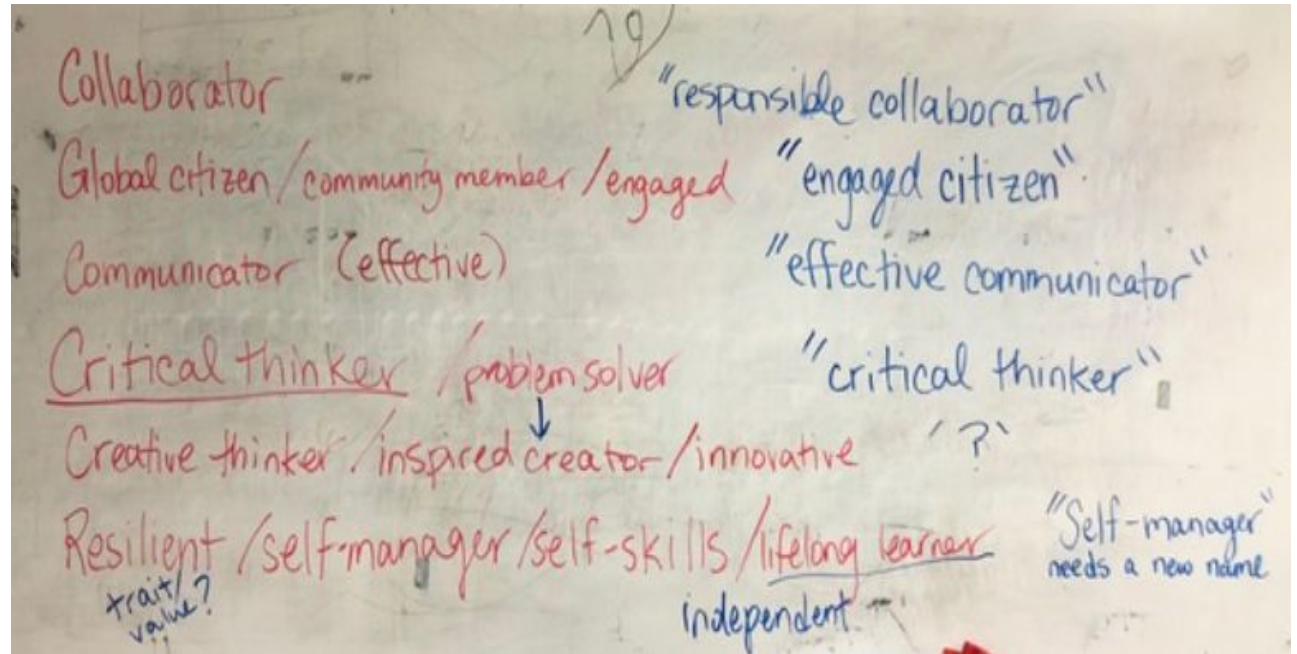 Collaborator "responsible collaborator"
Global citizen / community member / engaged "engaged citizen"
Communicator (effective) "effective communicator"
Critical thinker / problem solver "critical thinker"
↓
Creative thinker / inspired creator / innovative '?'
Resilient / self-manager / self-skills / lifelong learner "Self-manager"
needs a new name
trait/
value?
independent